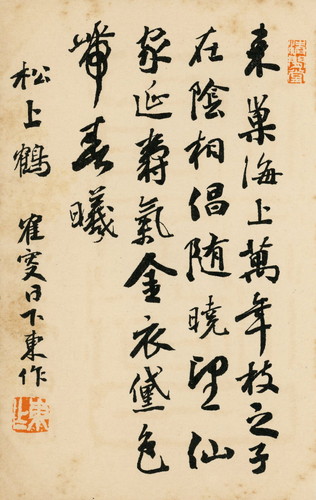 来巢海上萬年枝之子
在陰相倡随曉望仙
家延壽氣金衣黛色
帶春曦
松上鶴
日下東作